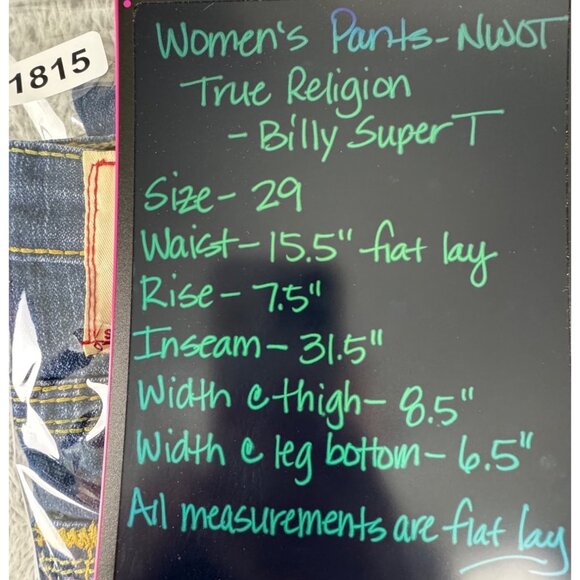 1815
Women's Pants - NWOT
True Religion
- Billy Super T
Size - 29
Waist - 15.5" flat lay
Rise - 7.5"
Inseam - 31.5"
Width @ thigh - 8.5"
Width @ leg bottom - 6.5"
All measurements are flat lay